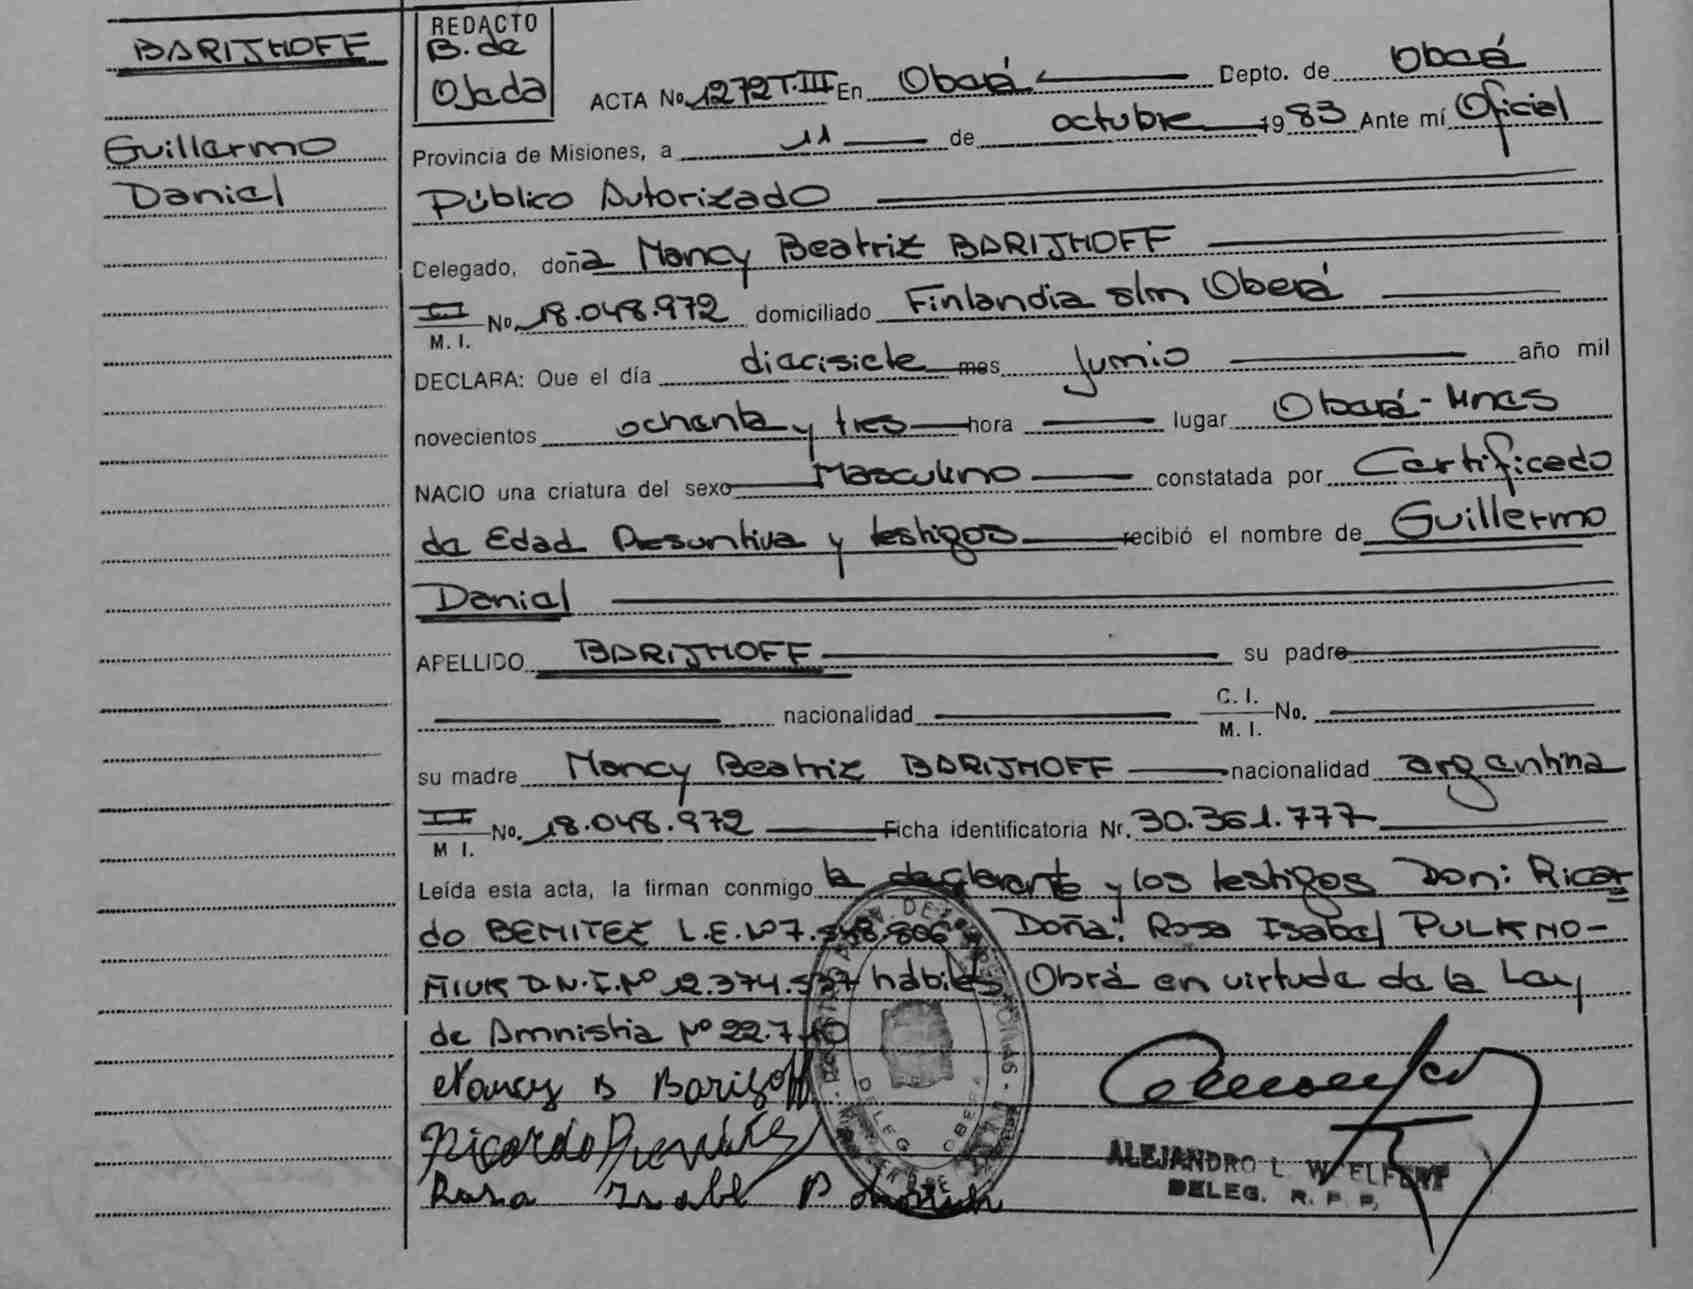 BARIJHOFF
Guillermo
Daniel
REDACTO
B. de
Ojeda
ACTA No. 1272 T.III En Oberá Depto. de Oberá
Provincia de Misiones, a 11 de octubre 1983 Ante mí Oficial
Público Autorizado
Delegado, doña Nancy Beatriz BARIJHOFF
M. I. No. 18.048.972 domiciliado Finlandia s/n Oberá
DECLARA: Que el día diecisiete mes Junio año mil
novecientos ochenta y tres hora lugar Oberá - Mnes
NACIO una criatura del sexo Masculino constatada por Certificado
de Edad Presuntiva y testigos recibió el nombre de Guillermo
Daniel
APELLIDO BARIJHOFF su padre
nacionalidad C. I. M. I. No.
su madre Nancy Beatriz BARIJHOFF nacionalidad argentina
M I. No. 18.048.972 Ficha identificatoria Nr. 30.361.777
Leída esta acta, la firman conmigo la declarante y los testigos Don: Ricar
do BENITEZ L.E. Nº 7. .806 Doña: Rosa Isabel PULKNO-
D.N.I. Nº 12.374. hábiles Obrá en virtude de la Ley
de Amnistia Nº 22.7
Nancy B Barijoff
Ricardo Benitez
Rosa Isabel P
ALEJANDRO L. W.
DELEG. R. P. P.